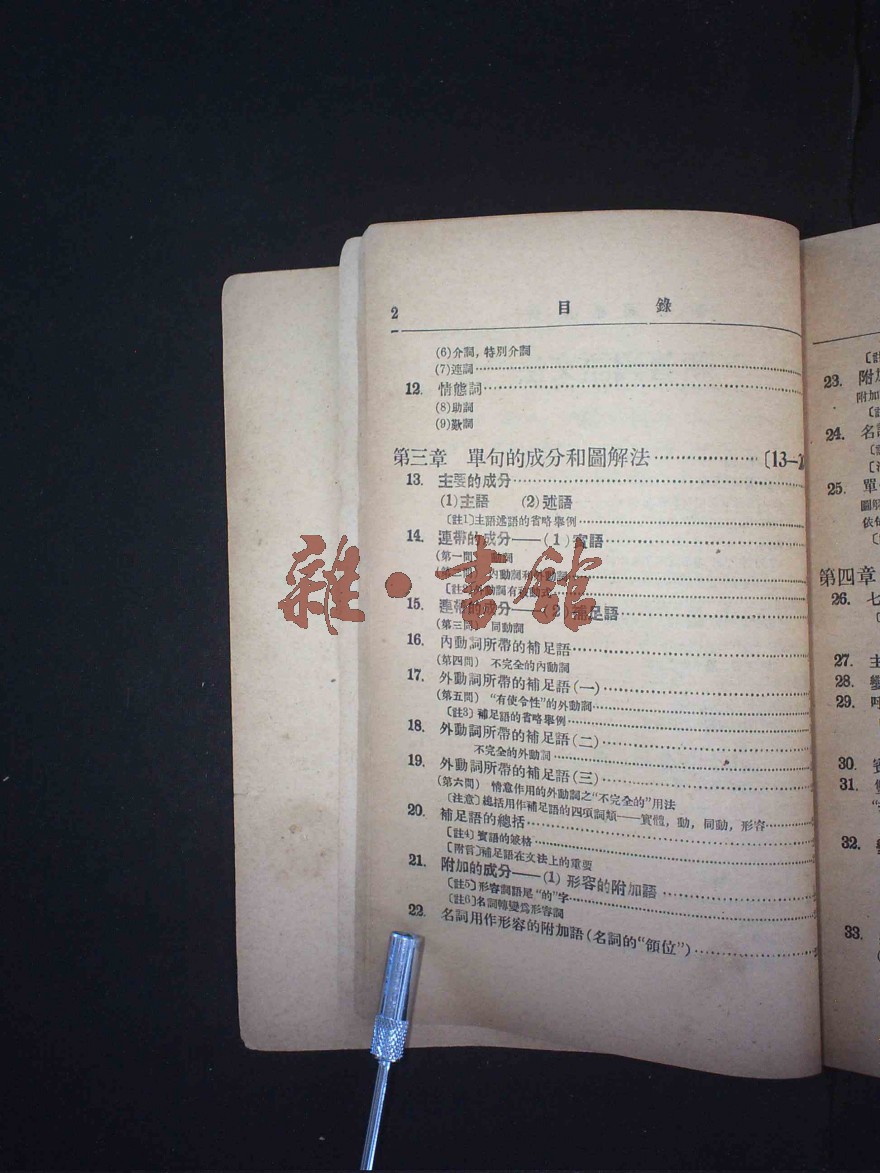 2 目 錄
(6)介詞,特別介詞
(7)連詞
12. 情態詞
(8)助詞
(9)歎詞
第三章 單句的成分和圖解法〔13—
13. 主要的成分
(1)主語 (2)述語
〔註1〕主語述語的省略舉例
14. 連帶的成分——(1)賓語
(第一問) 動詞
(第二問) 內動詞和外動詞
〔註2〕外動詞有被動式
15. 連帶的成分——(2)補足語
(第三問) 同動詞
16. 內動詞所帶的補足語
(第四問) 不完全的內動詞
17. 外動詞所帶的補足語(一)
(第五問) “有使令性”的外動詞
〔註3〕補足語的省略舉例
18. 外動詞所帶的補足語(二)
不完全的外動詞
19. 外動詞所帶的補足語(三)
(第六問) 情意作用的外動詞之“不完全的”用法
〔注意〕總括用作補足語的四項詞類——實體,動,同動,形容
20. 補足語的總括
〔註4〕賓語的變格
〔附言〕補足語在文法上的重要
21. 附加的成分——(1) 形容的附加語
〔註5〕形容詞語尾“的”字
〔註6〕名詞轉變爲形容詞
22. 名詞用作形容的附加語(名詞的“領位”)
23. 附
附加
24. 名
25. 單
圖解
依
第四章
26. 七
27. 主
28.
29. 呼
30.
31.
32.
33.
雜·書館